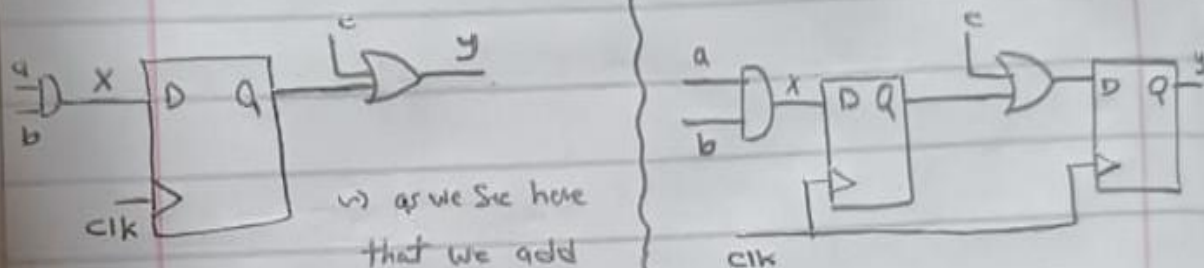 a
b
x
D Q
clk
c
y
as we see here
that we add
a
b
x
D Q
c
D Q
y
clk